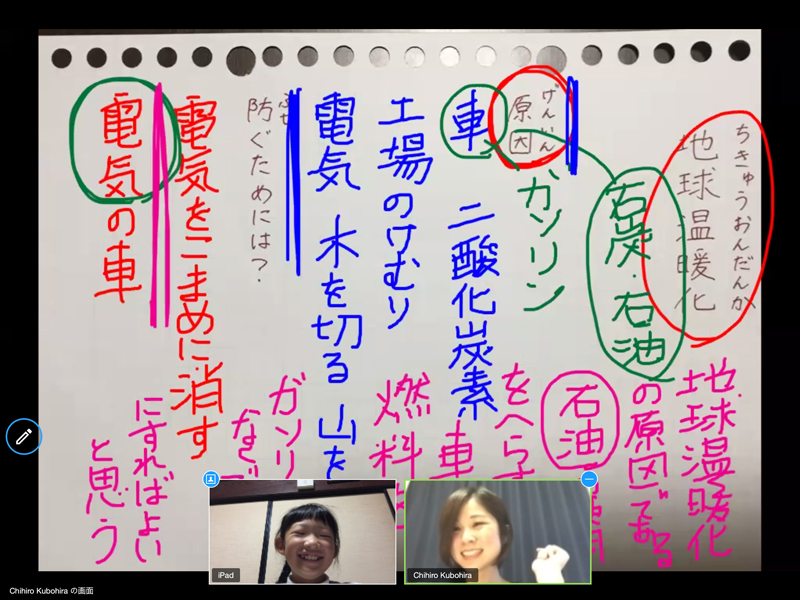 ちきゅうおんだんか
地球温暖化
石炭・石油
げんいん
原因
ガソリン
車 二酸化炭素
工場のけむり
電気 木を切る 山を
ふせ
防ぐためには？
電気をこまめに消す
電気の車
地球温暖化
の原因である
石油
をへらす
車
燃料
ガソリ
なく
にすればよい
と思う
iPad
Chihiro Kubohira
Chihiro Kubohira の画面